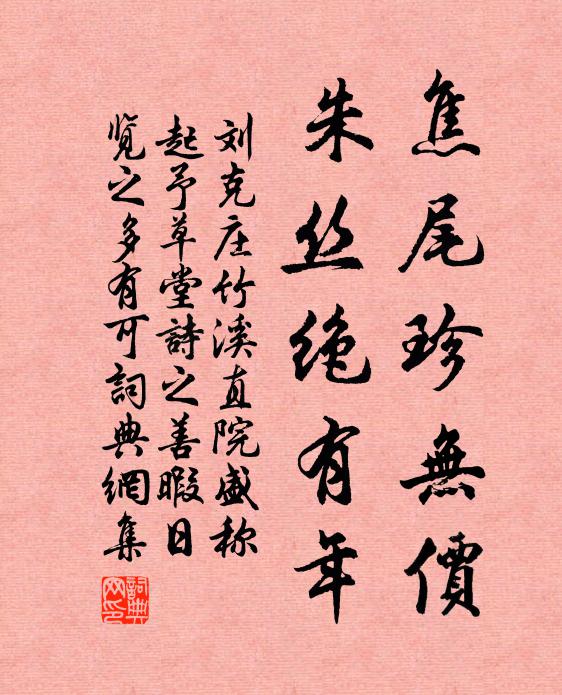 焦尾珍無價
朱丝绝有年
刘克庄竹溪直院盛称
起予草堂詩之善暇日
览之多有可詞典網集
詞典
网印